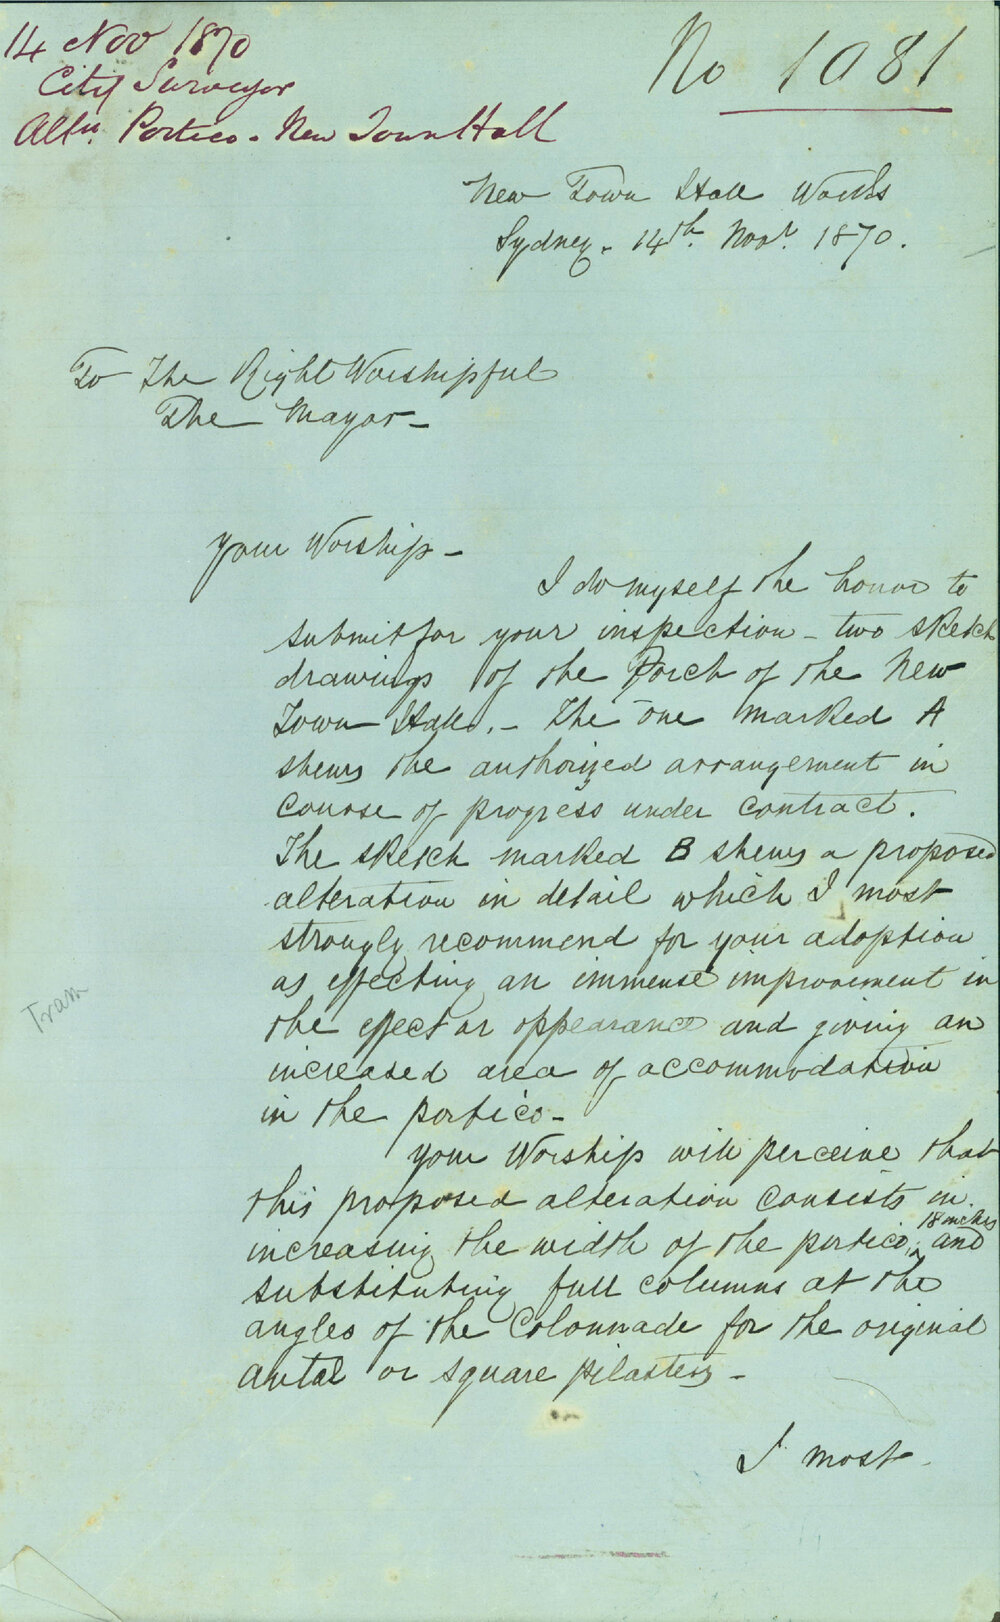 14 Nov 1870
City Surveyor
Altn. Portico - New Town Hall
No 1081
New Town Hall Works
Sydney. 14th. Novr. 1870.
To The Right Worshipful
The Mayor -
Your Worship -
I do myself the honor to
submit for your inspection - two sketch
drawings of the Porch of the New
Town Hall. - The one marked A
shews the authorized arrangement in
course of progress under contract.
The sketch marked B shews a proposed
alteration in detail which I most
strongly recommend for your adoption
as effecting an immense improvement in
the effect or appearance and giving an
increased area of accommodation
in the portico -
Your Worship will perceive that
this proposed alteration consists in
increasing the width of the portico, 18 inches and
substituting full columns at the
angles of the Colonnade for the original
antae or square pilasters -
I most
Tram